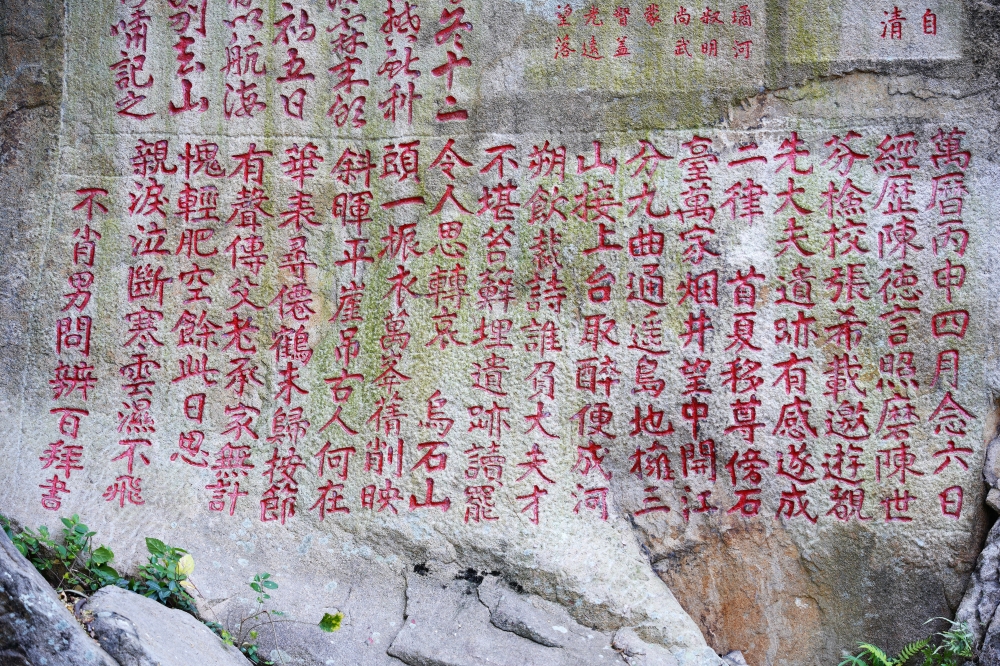 自
清
河
叔明
尚武
老遠
望落
冬十二
科
初五日
以航海
別去山
嘯記之
萬曆丙申四月念六日
經歷陳德言照磨陳世
芬檢校張希載邀遊觀
先大夫遺跡有感遂成
二律 首夏移尊傍石
臺萬家烟井望中開江
分九曲通遥島地擁三
山接上台取醉便成河
朔飲裁詩誰負大夫才
不堪苔蘚埋遺跡讀罷
令人思轉哀 烏石山
頭一振衣萬峯蒨削映
斜暉平崖吊古人何在
華表尋僊鶴未歸按節
有聲傳父老承家無計
愧輕肥空餘此日思
親淚泣斷寒雲濕不飛
不肖男問辨百拜書